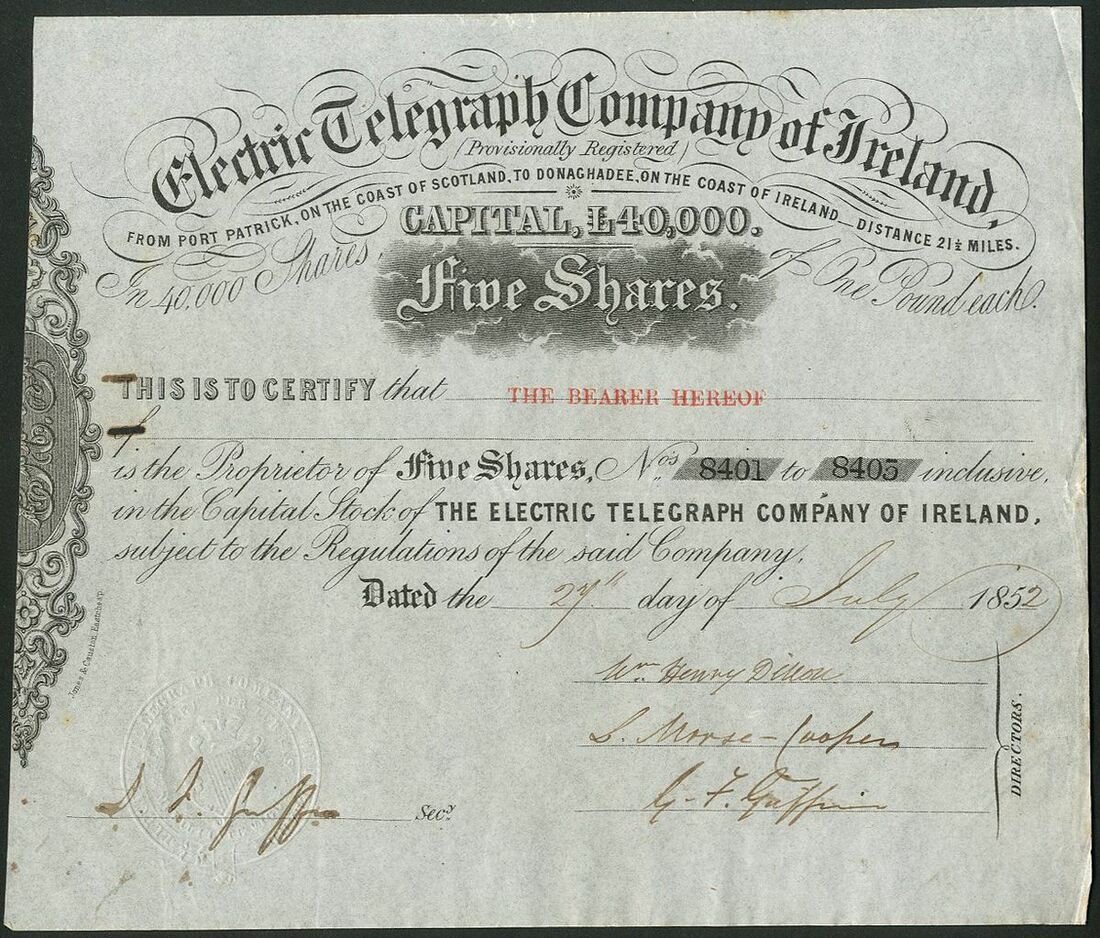 Electric Telegraph Company of Ireland,
(Provisionally Registered)
FROM PORT PATRICK, ON THE COAST OF SCOTLAND, TO DONAGHADEE, ON THE COAST OF IRELAND. DISTANCE 21½ MILES.
CAPITAL, £40,000.
In 40,000 Shares, of One Pound each.
Five Shares.
THIS IS TO CERTIFY that THE BEARER HEREOF
of
is the Proprietor of Five Shares, Nos. 8401 to 8405 inclusive,
in the Capital Stock of THE ELECTRIC TELEGRAPH COMPANY OF IRELAND,
subject to the Regulations of the said Company.
Dated the 27th day of July 1852
Jones & Causton, Eastcheap.
Wm Henry Dillon
S. Morse-Cooper
G. F. Griffin
DIRECTORS.
Secy.